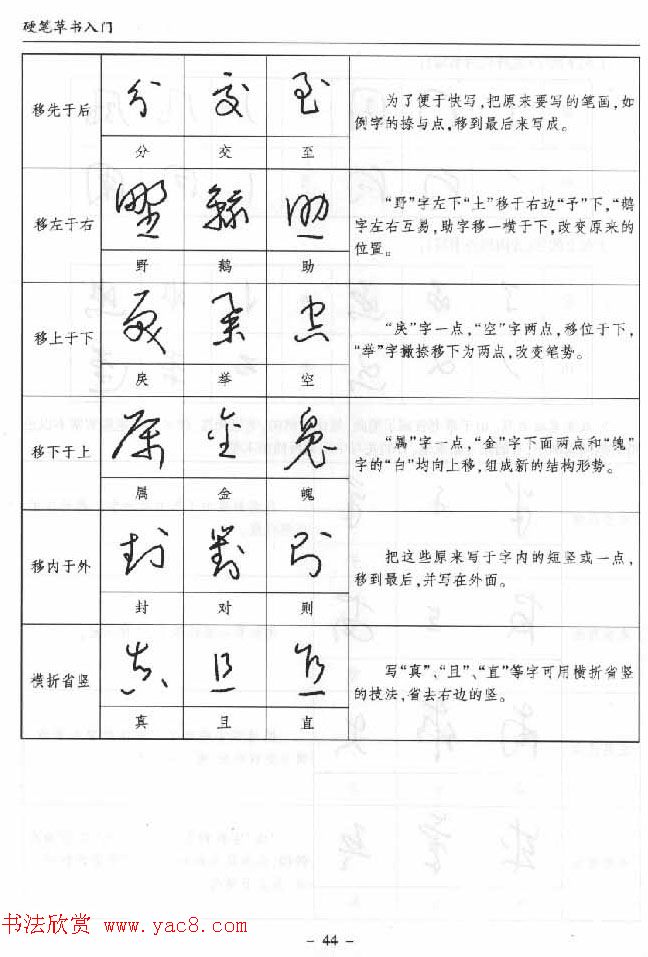 硬笔草书入门
移先于后
分 交 至
为了便于快写,把原来要写的笔画,如
例字的捺与点,移到最后来写成。
移左于右
野 鹅 助
“野”字左下“土”移于右边“予”下,“鹅
字左右互易,助字移一横于下,改变原来的
位置。
移上于下
戾 举 空
“戾”字一点,“空”字两点,移位于下,
“举”字撇捺移下为两点,改变笔势。
移下于上
属 金 魄
“属”字一点,“金”字下面两点和“魄”
字的“白”均向上移,组成新的结构形势。
移内于外
封 对 则
把这些原来写于字内的短竖或一点,
移到最后,并写在外面。
横折省竖
真 且 直
写“真”、“且”、“直”等字可用横折省竖
的技法,省去右边的竖。
书法欣赏 www.yac8.com
- 44 -